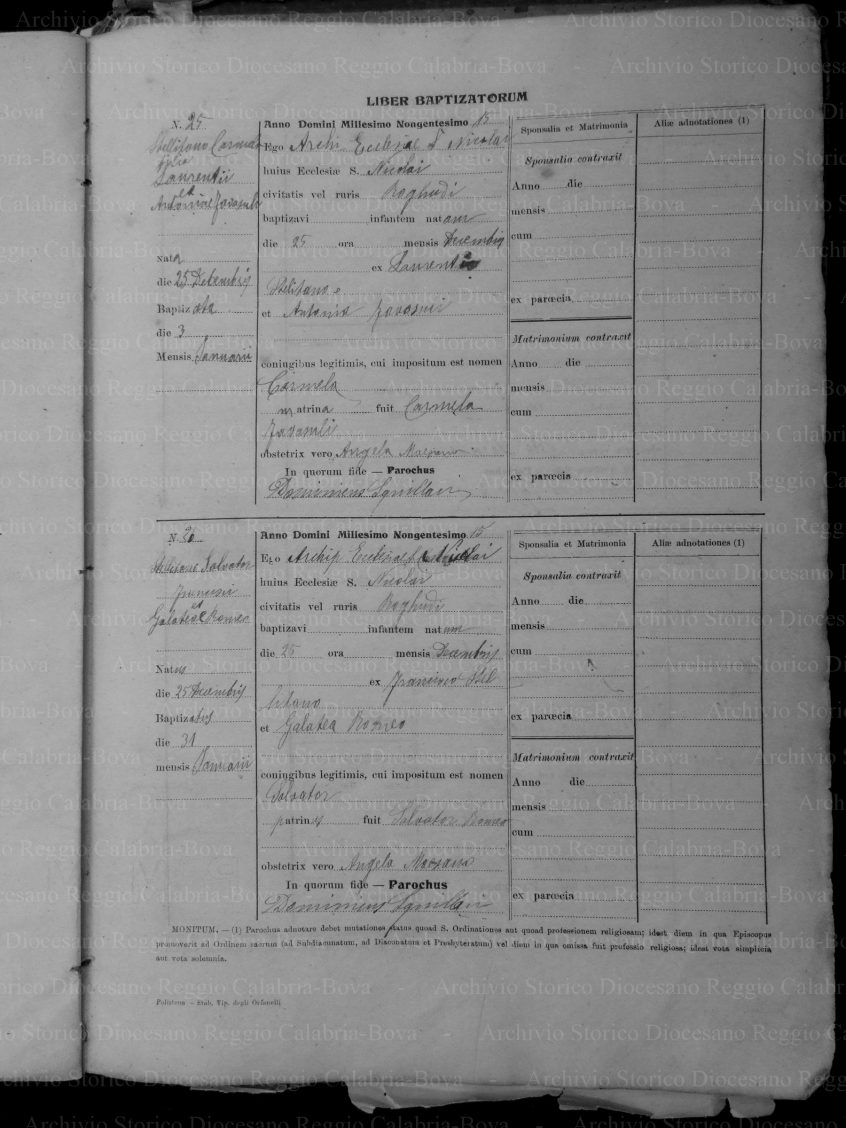 LIBER BAPTIZATORUM
N. 25
Stellitano Carmela
filia
Laurentii
et
Antoniae
Nata
die 25 Decembris
Baptizata
die 3
Mensis Januarii
Anno Domini Millesimo Nongentesimo 15
Ego Archip Ecclesiae S Nicolai
huius Ecclesiæ S. Nicolai
civitatis vel ruris Roghudi
baptizavi infantem natam
die 25 ora mensis Decembris
ex Laurentio
Stellitano
et Antonia
coniugibus legitimis, cui impositum est nomen
Carmela
matrina fuit Carmela
obstetrix vero Angela
In quorum fide — Parochus
Dominicus
Sponsalia et Matrimonia
Sponsalia contraxit
Anno die
mensis
cum
ex parœcia
Matrimonium contraxit
Anno die
mensis
cum
ex parœcia
Aliæ adnotationes (1)
N.
Stellitano Salvator
Francisci
et
Galateae Romeo
Natus
die 25 Decembris
Baptizatus
die 31
mensis Januarii
Anno Domini Millesimo Nongentesimo 15
Ego Archip Ecclesiae Nicolai
huius Ecclesiæ S. Nicolai
civitatis vel ruris Roghudi
baptizavi infantem natum
die 25 ora mensis Decembris
ex Francisco Stel
litano
et Galatea Romeo
coniugibus legitimis, cui impositum est nomen
Salvator
patrinus fuit Salvator Romeo
obstetrix vero Angela
In quorum fide — Parochus
Dominicus
Sponsalia et Matrimonia
Sponsalia contraxit
Anno die
mensis
cum
ex parœcia
Matrimonium contraxit
Anno die
mensis
cum
ex parœcia
Aliæ adnotationes (1)
MONITUM. — (1) Parochus adnotare debet mutationes status quoad S. Ordinationes aut quoad professionem religiosam; idest diem in qua Episcopus
promoverit ad Ordinem sacrum (ad Subdiaconatum, ad Diaconatum et Presbyteratum) vel diem in qua omissa fuit professio religiosa; idest vota simplicia
aut vota solemnia.
Polistena — Stab. Tip. degli Orfanelli
Archivio Storico Diocesano Reggio Calabria-Bova